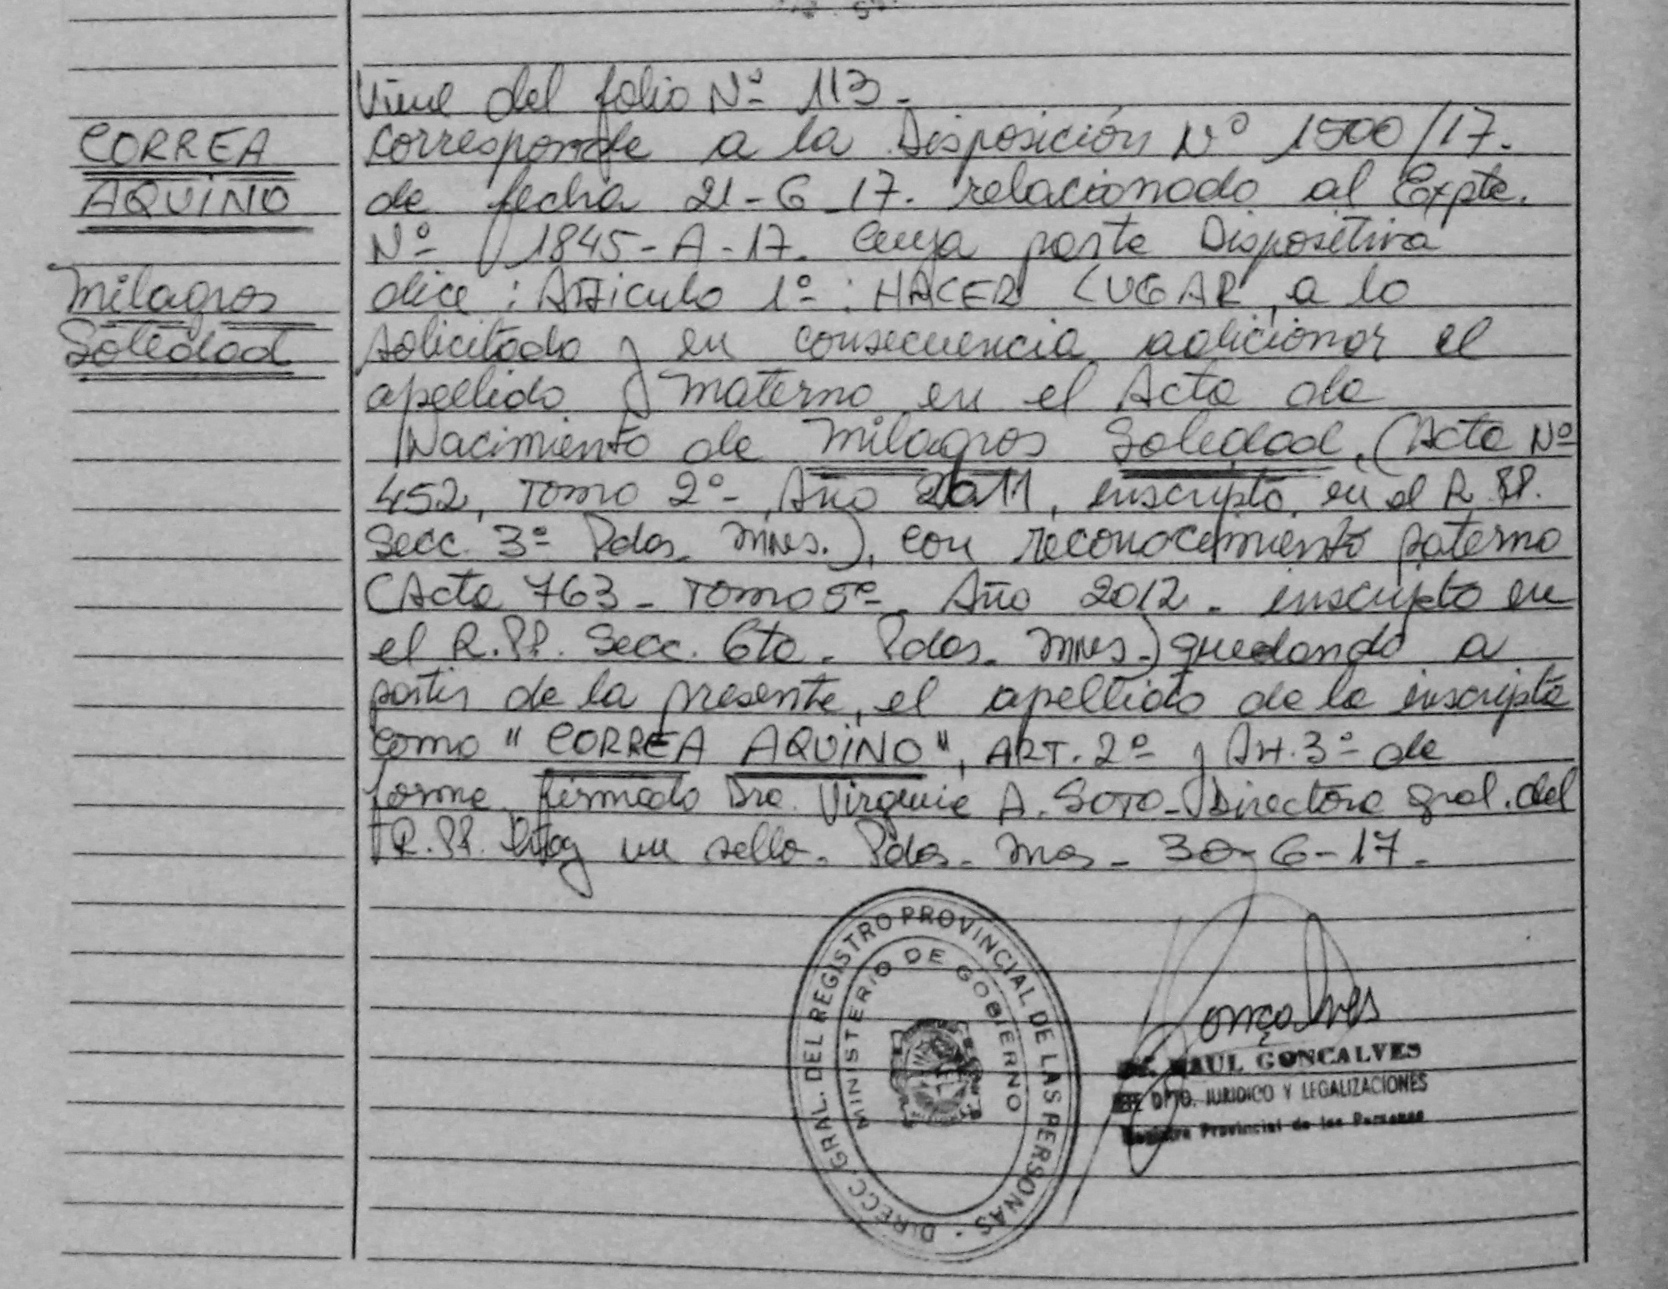 CORREA
AQUINO
Milagros
Soledad
Viene del folio Nº 113-
Corresponde a la Disposición Nº 1500/17.
de fecha 21-6-17. relacionado al Expte.
Nº 1845-A-17. Cuya parte Dispositiva
dice: Artículo 1º: HACER LUGAR, a lo
solicitado y en consecuencia adicionar el
apellido materno en el Acta de
Nacimiento de Milagros Soledad, (Acta Nº
452, Tomo 2º-, Año 2011, inscripta en el R.PP.
Secc. 3º Pdas. Mnes.), con reconocimiento paterno
(Acta 763- Tomo 5º- Año 2012. inscripto en
el R.PP. Secc. 6ta. Pdas. Mnes.) quedando a
partir de la presente, el apellido de la inscripta
como "CORREA AQUINO", ART. 2º y Art. 3º de
forma. firmado Dra. Virginia A. SOTO- Directora Gral. del
R.PP. Hay un sello. Pdas. Mnes- 30-6-17-
DIRECC. GRAL. DEL REGISTRO PROVINCIAL DE LAS PERSONAS -
MINISTERIO DE GOBIERNO
Gonçalves
RAUL GONCALVES
DPTO. JURIDICO Y LEGALIZACIONES
Registro Provincial de las Personas